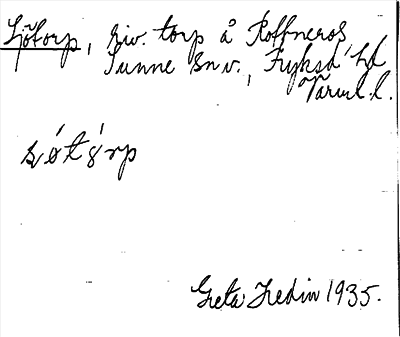 Sjötorp, riv. torp å Rottneros
Sunne snv., Fryksd. hd
Värml. l.
Greta Hedin 1935.